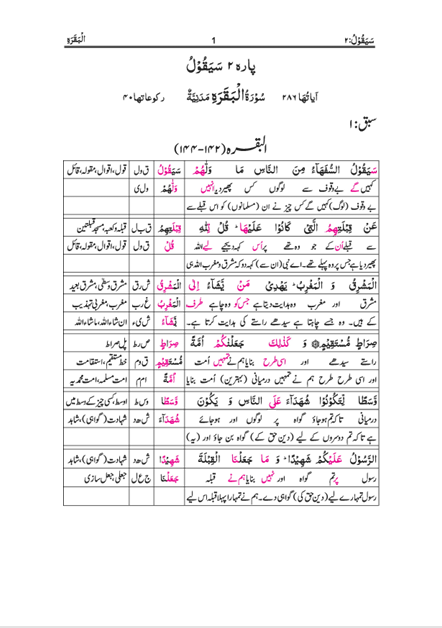 سَيَقُوْلُ:٢ 1 اَلْبَقَرَة
پارہ ٢ سَيَقُوْلُ
آیاتُھَا ٢٨٦ سُوْرَۃُ الْبَقَرَۃِ مَدَنِيَّةٌ رکوعاتھا ٤٠
سبق:ا
البقرہ (١٤٢-١٤٤)
سَيَقُوْلُ السُّفَهَآءُ مِنَ النَّاسِ مَا وَلّٰىهُمْ سَيَقُوْلُ ق و ل قول، اقوال، مقولہ، قائل
کہیں گے بے وقوف سے لوگوں کس پھیر دیا انہیں وَلّٰىهُمْ و ل ی
بے وقوف (لوگ) کہیں گے کس چیز نے ان (مسلمانوں) کو اس قبلے سے
عَنْ قِبْلَتِهِمُ الَّتِيْ كَانُوْا عَلَيْهَا ؕ قُلْ لِّلّٰهِ قِبْلَتِهِمُ ق ب ل قبلہ و کعبہ، مسجد قبلتین
سے قبلے اُن کے جو وہ تھے پر اُس کہہ دیجیے لیے اللہ قُلْ ق و ل قول، اقوال، مقولہ، قائل
پھیر دیا ہے جس پر وہ پہلے تھے۔ اے نبی (ان سے) کہہ دو کہ مشرق و مغرب اللہ ہی
الْمَشْرِقُ وَ الْمَغْرِبُ ؕ يَهْدِيْ مَنْ يَّشَآءُ اِلٰى الْمَشْرِقُ ش ر ق مشرق وسطیٰ، مشرق بعید
مشرق اور مغرب وہ ہدایت دیتا ہے جس کو وہ چاہے طرف الْمَغْرِبُ غ ر ب مغرب، مغربی تہذیب
کے ہیں۔ وہ جسے چاہتا ہے سیدھے راستے کی ہدایت کرتا ہے۔ يَّشَآءُ ش ی ء ان شاءاللہ، ماشاءاللہ
صِرَاطٍ مُّسْتَقِيْمٍ وَ كَذٰلِكَ جَعَلْنٰكُمْ اُمَّةً صِرَاطٍ ص ر ط پل صراط
راستے سیدھے اور اسی طرح بنایا ہم نے تمہیں اُمت مُّسْتَقِيْمٍ ق و م خط مستقیم، استقامت
اور اسی طرح ہم نے تمہیں درمیانی (بہترین) اُمت بنایا اُمَّةً ا م م امت مسلمہ، امت محمدیہ
وَّسَطًا لِّتَكُوْنُوْا شُهَدَآءَ عَلَى النَّاسِ وَ يَكُوْنَ وَّسَطًا و س ط اوسط، کسی چیز کے وسط میں
درمیانی تاکہ تم ہو جاؤ گواہ پر لوگوں اور ہو جائے شُهَدَآءَ ش ھ د شہادت (گواہی)، شاہد
ہے تاکہ تم دوسروں کے لیے (دین حق کے) گواہ بن جاؤ اور (یہ)
الرَّسُوْلُ عَلَيْكُمْ شَهِيْدًا ؕ وَ مَا جَعَلْنَا الْقِبْلَةَ شَهِيْدًا ش ھ د شہادت (گواہی)، شاہد
رسول پر تم گواہ اور نہیں بنایا ہم نے قبلہ جَعَلْنَا ج ع ل جعلی، جعل سازی
رسول تمہارے لیے (دین حق کی) گواہی دے۔ ہم نے تمہارا پہلا قبلہ اس لیے